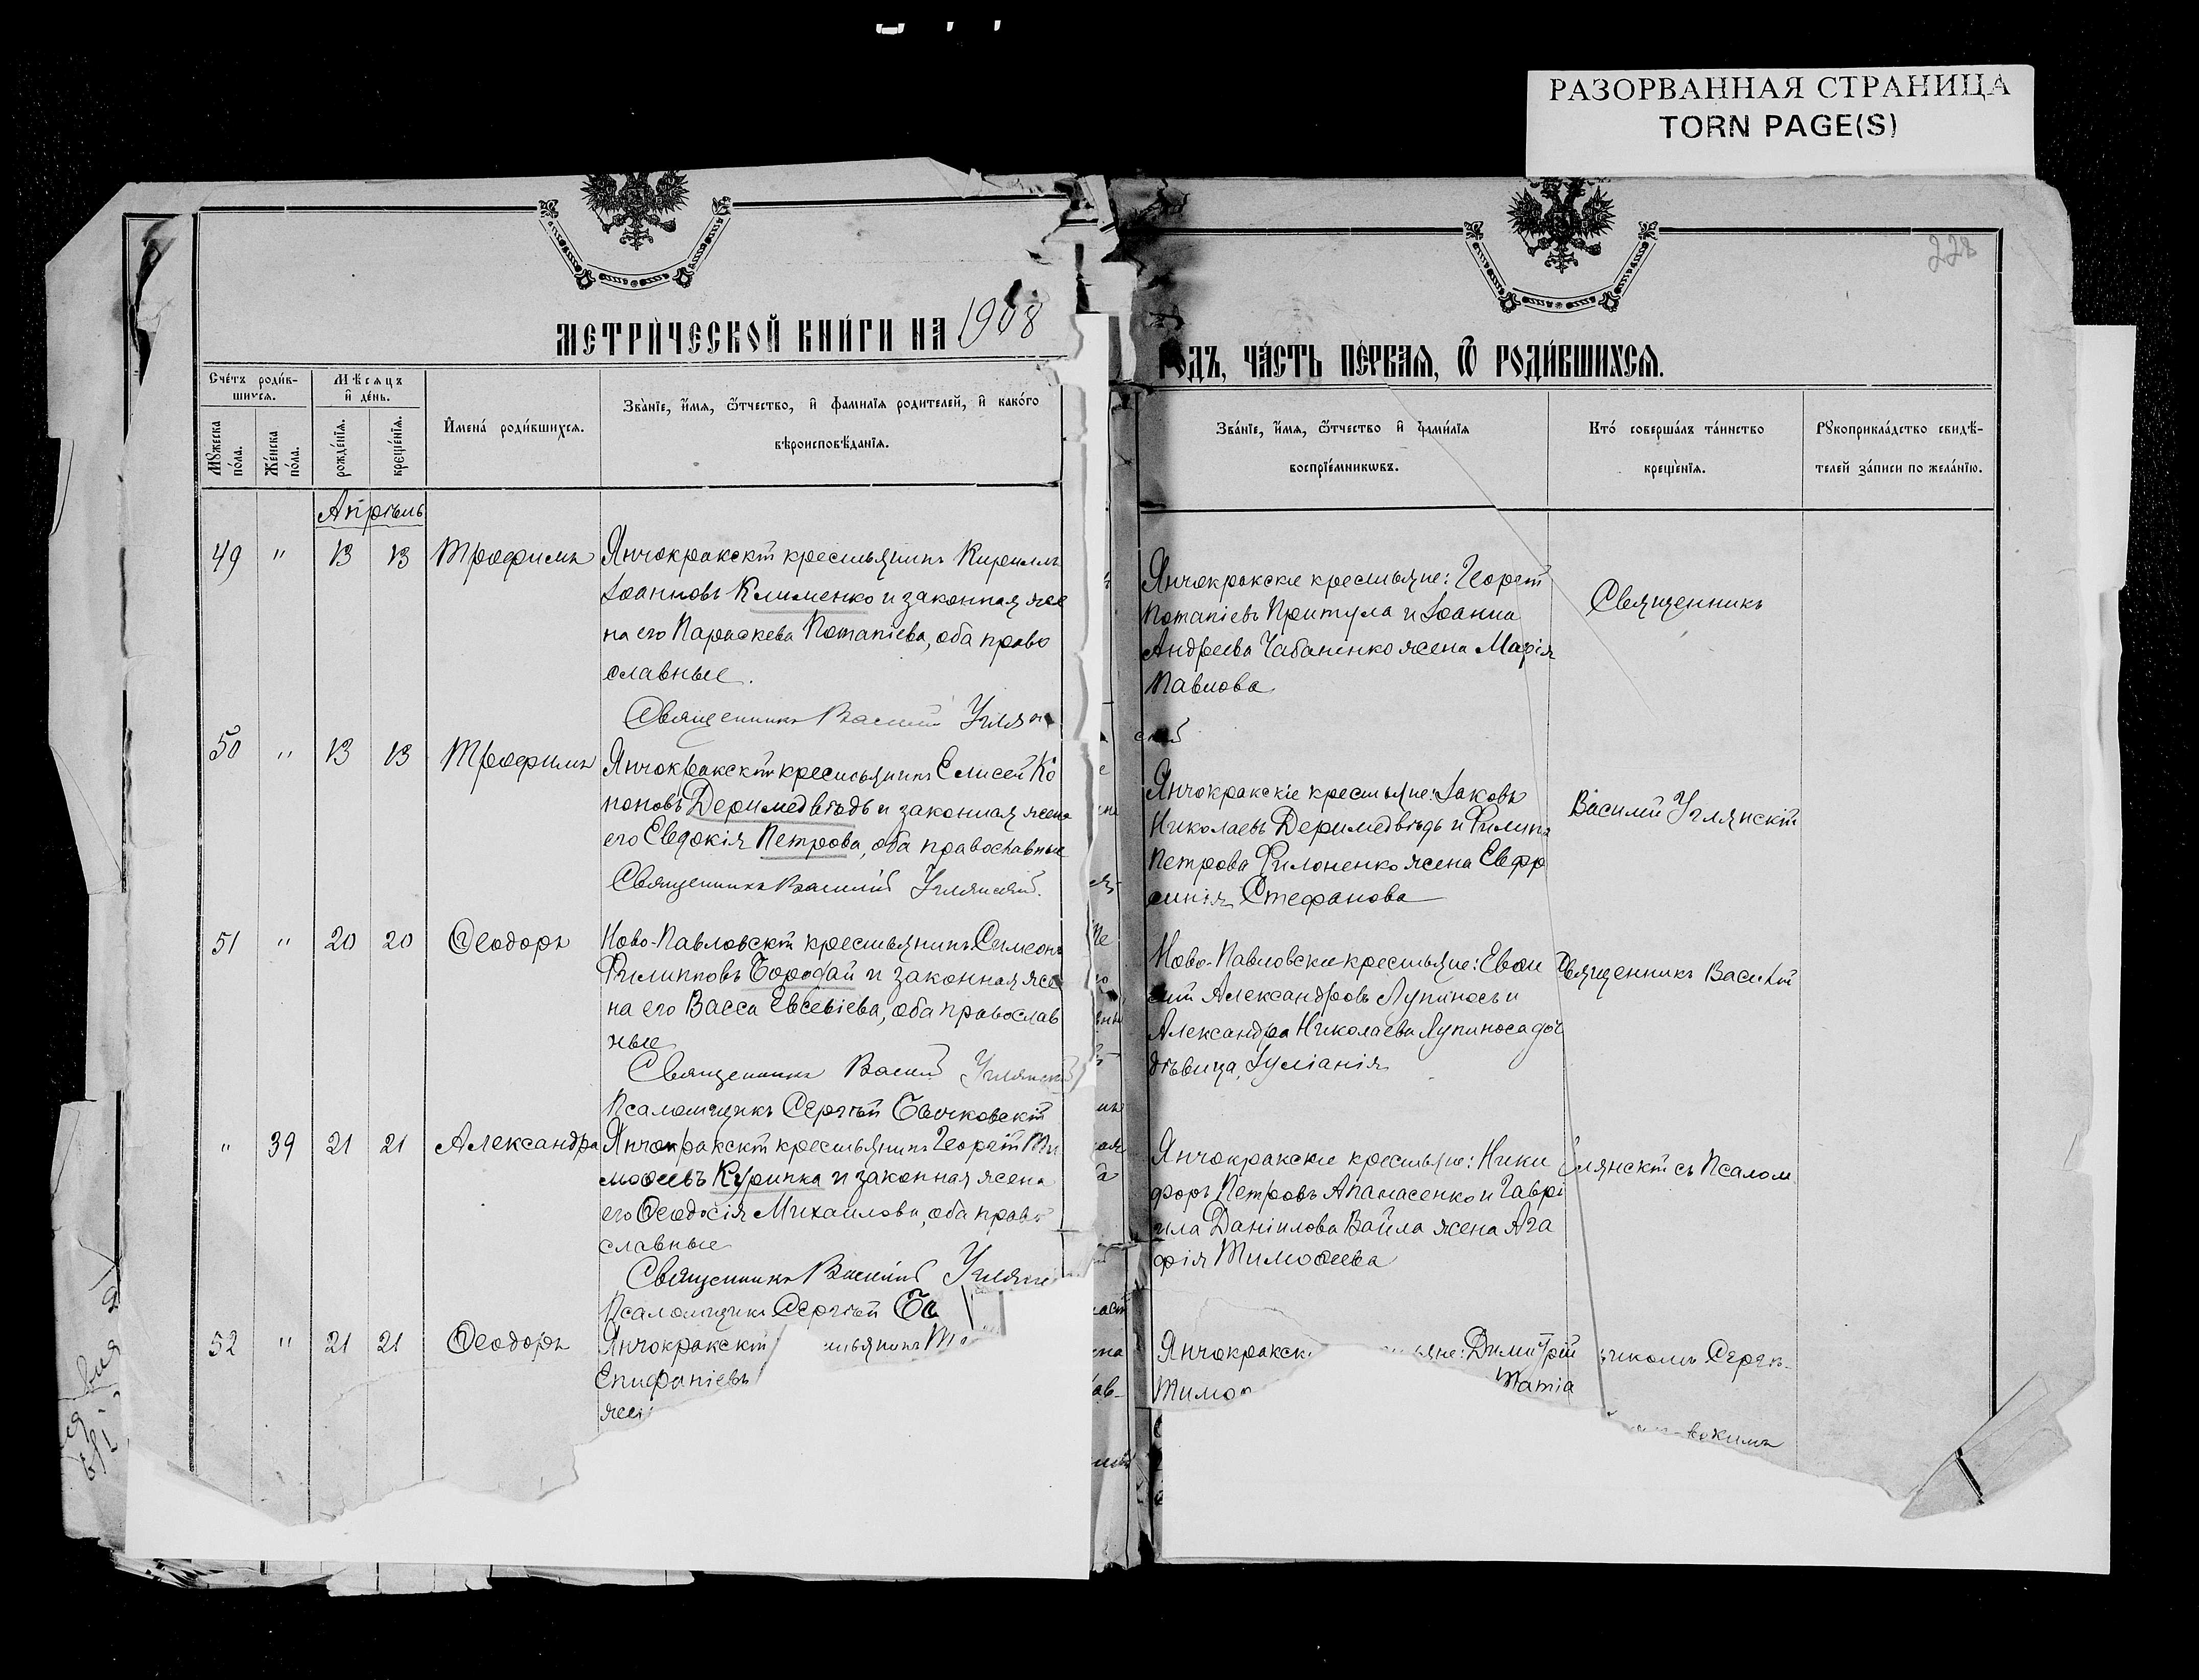 РАЗОРВАННАЯ СТРАНИЦА
TORN PAGE(S)
228
МЕТРИ́ЧЕСКОЙ КНИ́ГИ НА 1908
ГОДЪ, ЧА́СТЬ ПЕ́РВАЯ, Ѿ РОДИ́ВШИХСЯ.
Сче́тъ роди́в-
шихся.
Мꙋжеска по́ла.
Же́нска по́ла.
Мѣсяцъ
и҆ де́нь.
рожде́нїя.
креще́нїя.
И҆мена́ роди́вшихся.
Зва́нїе, и҆́мя, ѻ҆́тчество, и҆ фамилїя родителей, и҆ како́го
вѣроисповѣ́данїя.
Зва́нїе, и҆́мя, ѻ҆́тчество и҆ фами́лїя
воспрїе́мникѡвъ.
Кто́ соверша́лъ та́инство
креще́нїя.
Рꙋкоприкла́дство свидѣ́-
телей за́писи по жела́нїю.
Апрѣль
49 " 13 13 Трофимъ
Янчокракскій крестьянинъ Кириллъ
Іоанновъ Клименко и законная же
на его Параскева Потапіева, оба право
славные.
Священникъ Василій Углян
скій
Янчокракскіе крестьяне: Георгій
Потапіевъ Притула и Іоанна
Андреева Чабаненко жена Марія
Павлова
Священникъ
50 " 13 13 Трофимъ
Янчокракскій крестьянинъ Елисей Ко
ноновъ Деримедвѣдь и законная жена
его Евдокія Петрова, оба православные
Священникъ Василій Углянскій.
Янчокракскіе крестьяне: Іаковъ
Николаевъ Деримедвѣдь и Филипа
Петрова Филоненко жена Евфро
синія Стефанова
Василій Углянскій
51 " 20 20 Ѳеодоръ
Ново-Павловскій крестьянинъ Симеонъ
Филипповъ Бородай и законная же
на его Васса Евсевіева, оба православ
ные
Священникъ Василій Углянскій
Псаломщикъ Сергѣй Бычковскій
Ново-Павловскіе крестьяне: Евѳи
мій Александровъ Лупиносъ и
Александра Николаева Лупиноса доч
дѣвица, Іуліанія
Священникъ Василій
" 39 21 21 Александра
Янчокракскій крестьянинъ Георгій Ти
моѳеевъ Куринка и законная жена
его Ѳеодосія Михаилова, оба право
славные
Священникъ Василій Углянс
Псаломщикъ Сергѣй Бы
Янчокракскіе крестьяне: Ники
форъ Петровъ Апанасенко и Гаврі
ила Даніилова Вайла жена Ага
фія Тимоѳеева
Углянскій съ Псалом
52 " 21 21 Ѳеодоръ
Янчокракскій
Епифаніевъ
жен
Янчокракск яне: Димитрій
Тимо Татіа
щикомъ Сергѣ-